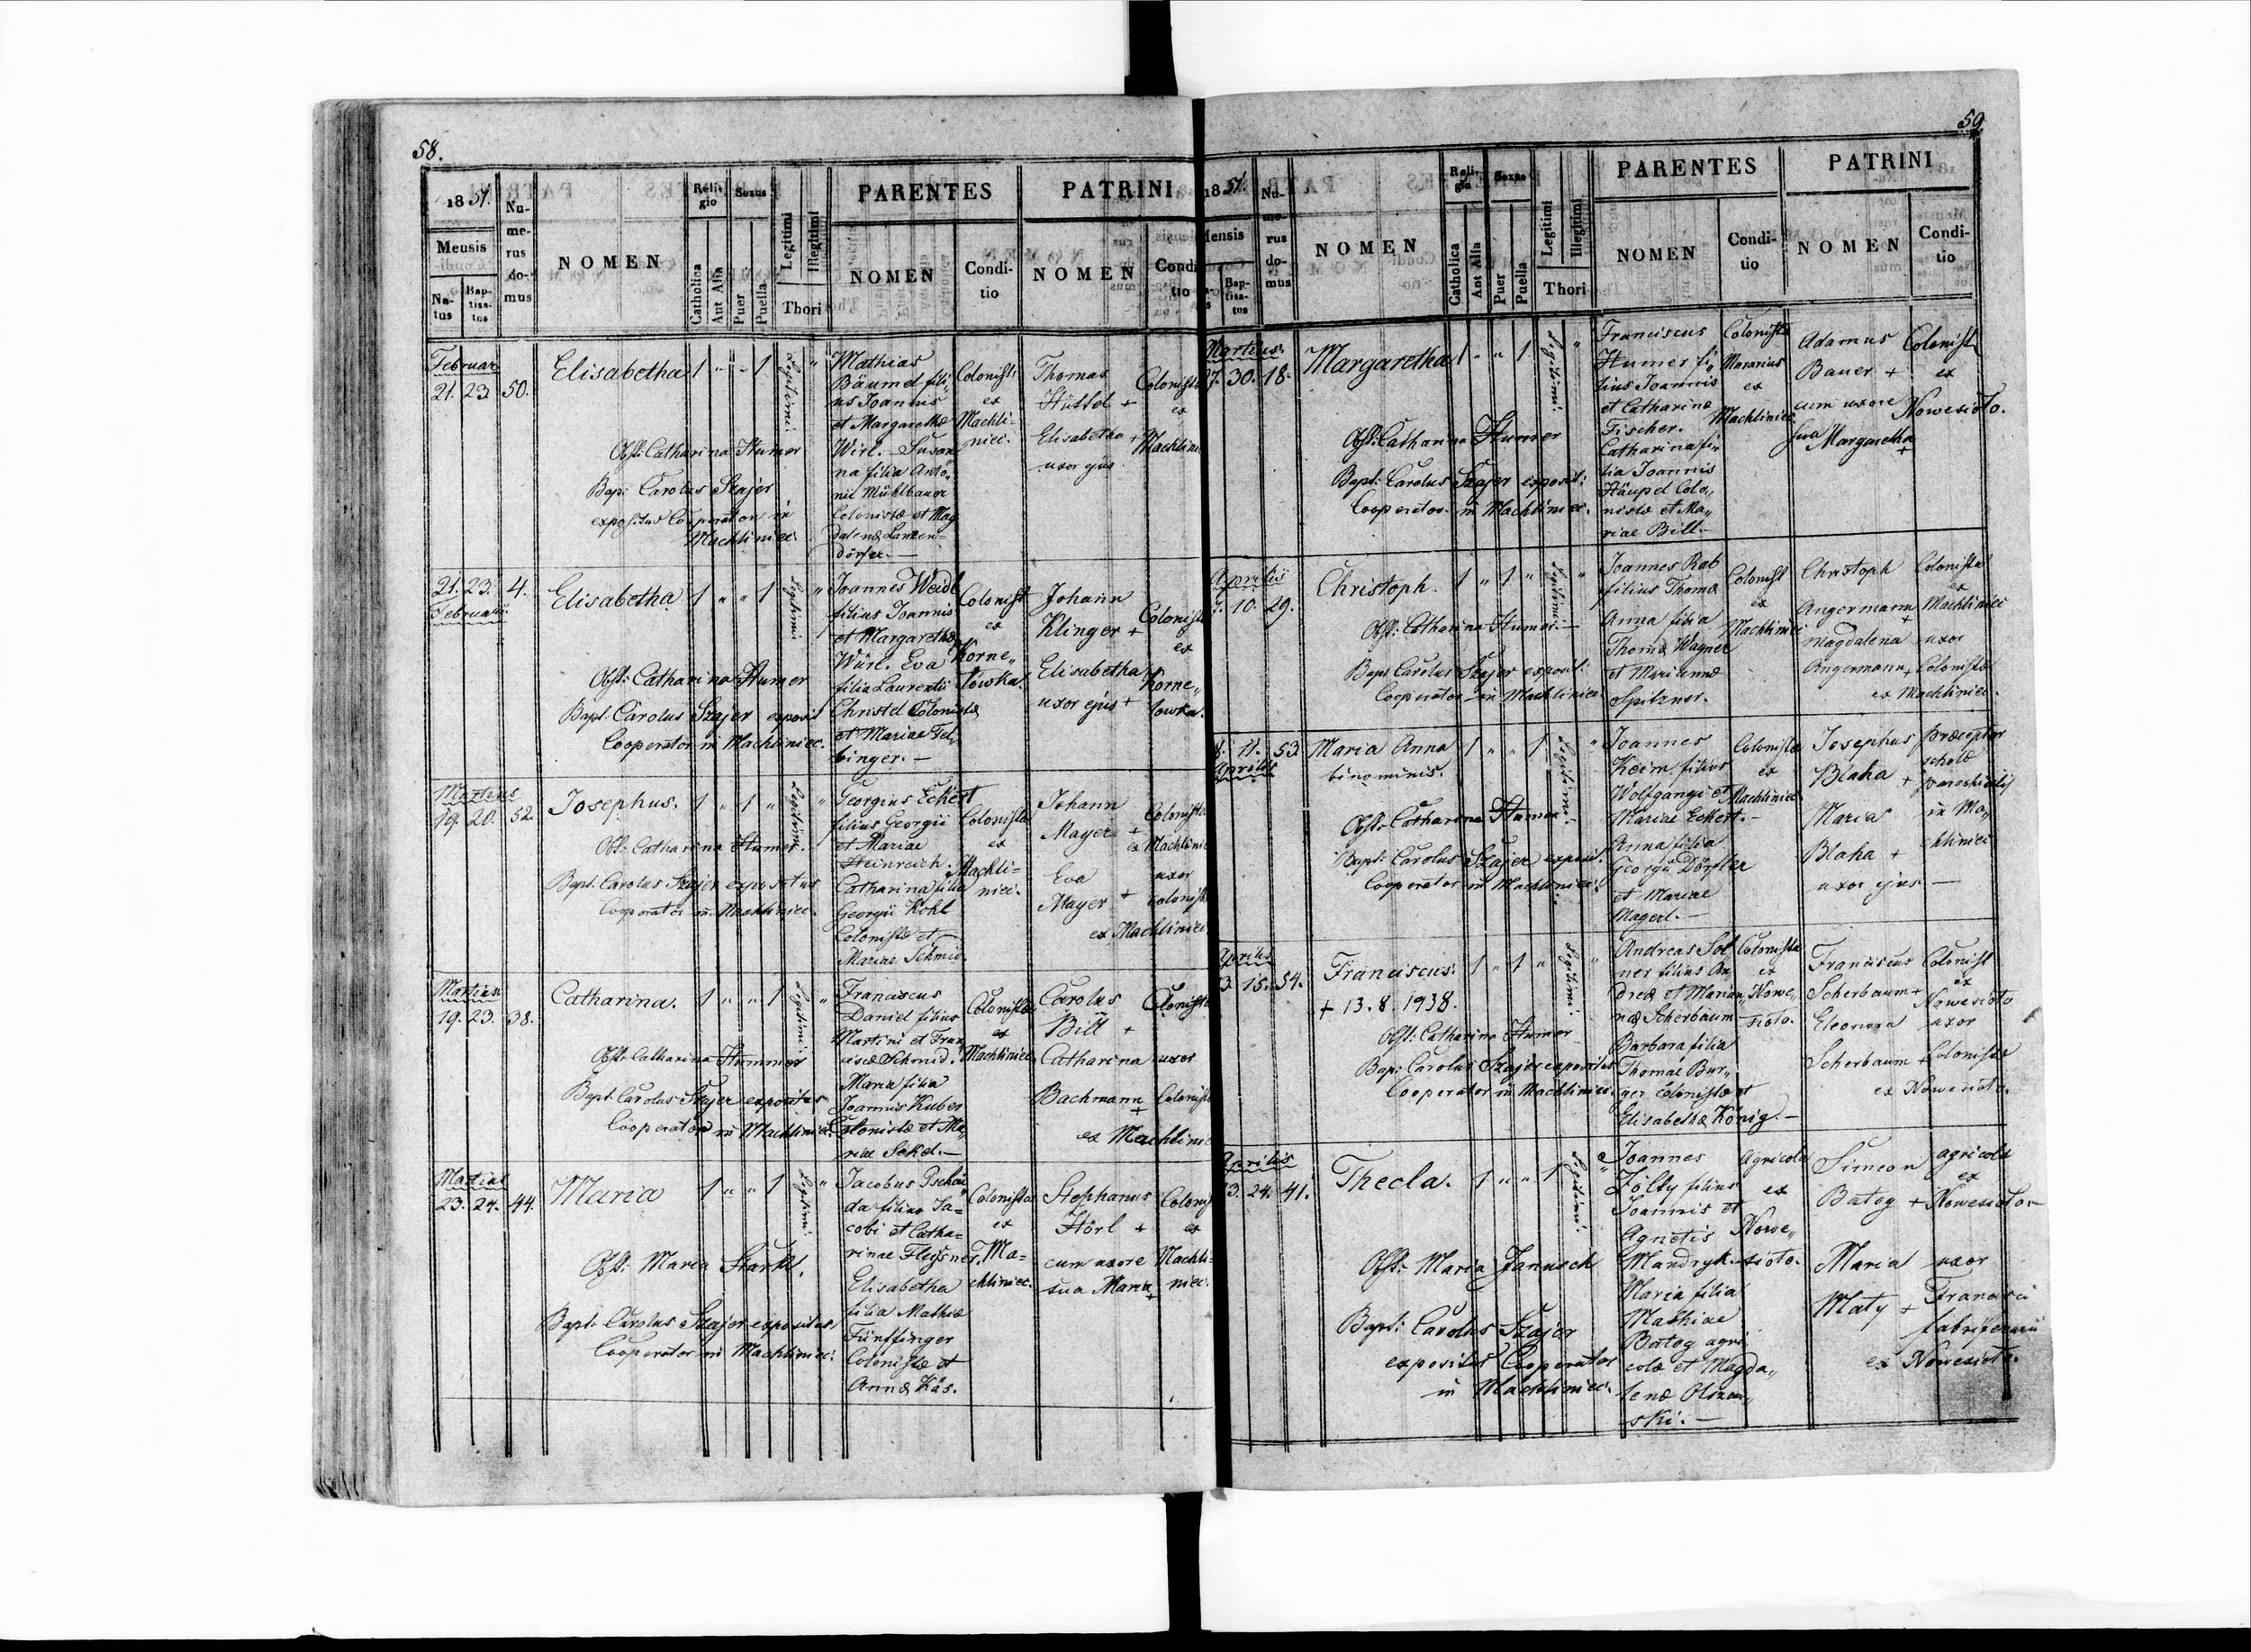 58.
1851.
Mensis
Natus
Baptisatus
Numerus domus
NOMEN
Religio
Catholica
Aut Alia
Sexus
Puer
Puella
Legitimi
Illegitimi
Thori
PARENTES
NOMEN
Conditio
PATRINI
NOMEN
Conditio
Februar
21. 23. 50.
Elisabetha
1 " " 1
Legitimi
"
Obst: Catharina Humer
Bapt: Carolus Szajer
expositus Cooperator in
Machliniec.
Mathias
Bäumel fili„
us Joannis
et Margarethæ
Wirl. Susan„
na filia Anto„
nii Mühlbauer
Colonistæ et Mag
dalenæ Lanzen=
dörfer.—
Colonist:
ex
Machli-
niec.
Thomas
Hüttel +
Elisabetha +
uxor ejus
Colonista
ex
Machlini
21. 23. 4.
Februarii
Elisabetha
1 " " 1
Legitimi
"
Obst: Catharina Humer
Bapt: Carolus Szajer exposit
Cooperator in Machliniec.
Joannes Weidl
filius Joannis
et Margarethæ
Würl. Eva
filia Laurentii
Christel Colonistæ
et Mariae Fel„
binger.—
Colonist
ex
Korne„
lowka.
Johann
Klinger +
Elisabetha
uxor ejus +
Colonist
ex
Korne„
lowka.
Martius
19. 20. 52.
Josephus.
1 " 1 "
Legitimi
"
Obst: Catharina Humer.
Bapt: Carolus Szajer expositus
Cooperator in Machliniec.
Georgius Eckert
filius Georgii
et Mariae
Heinreich.
Catharina filia
Georgii Kohl
Colonistæ et
Mariae Schmid.
Colonista
ex
Machli=
niec.
Johann
Mayer +
Eva
Mayer +
Colonista
ex Machlinie
uxor
colonist
ex Machliniec
Martius
19. 23. 38.
Catharina.
1 " " 1
Legitimi
"
Obst: Catharina Hummer
Bapt: Carolus Szajer expositus
Cooperator in Machliniec.
Franciscus
Daniel filius
Martini et Fran„
ciscæ Schmid.
Maria filia
Joannis Kuber
Colonistæ et Ma„
riae Sekel.—
Colonista
ex
Machliniec
Carolus
Bill +
Catharina
Bachmann +
Colonista
uxor
Colonist
ex Machlinie
Martius
23. 24. 44.
Maria
1 " " 1
Legitimi
"
Obst: Maria Stark.
Bapt: Carolus Szajer expositus
Cooperator in Machliniec.
da filius Ja=
cobi et Catha=
rinae Fleysner.
Elisabetha
filia Mathiæ
Fünffinger
Colonistæ et
Annæ Käs.
Colonista
ex
Ma=
chliniec.
Stephanus
Hörl +
cum uxore
sua Maria +
Colonis
ex
Machli-
niec.
59
1851.
Mensis
Baptisatus
Numerus domus
NOMEN
Religio
Catholica
Aut Alia
Sexus
Puer
Puella
Legitimi
Illegitimi
Thori
PARENTES
NOMEN
Conditio
PATRINI
NOMEN
Conditio
Martius
27. 30. 18.
Margaretha
1 " " 1
Legitimi
"
Obst: Catharina Humer
Bapt: Carolus Szajer exposit:
Cooperator in Machliniec.
Franciscus
Humer fi„
lius Joannis
et Catharinæ
Fischer.
Catharina fi„
lia Joannis
Häupel Colo„
nistæ et Ma„
riae Bill.—
Colonista
Murarius
ex
Machliniec
Adamus
Bauer +
cum uxore
sua Margaretha
+
Colonist
ex
Nowesioło.
Aprilis
10. 29.
Christoph.
1 " 1 "
Legitimi
"
Obst: Catharina Humer.—
Bapt: Carolus Szajer exposit:
Cooperator in Machliniec
Joannes Rab
filius Thomæ
Anna filia
Thomæ Wagner
et Mariannæ
Spitzner.
Colonist
ex
Machliniec
Christoph
Angermann
+
Magdalena
Angermann +
Colonista
ex
Machliniec
uxor
Colonistæ
ex Machliniec.
11. 53.
Aprilis
Maria Anna
binominis.
1 " " 1
Legitimi
"
Obst: Catharina Humer
Bapt: Carolus Szajer exposit.
Cooperator in Machliniec.
Joannes
Keim filius
Wolfgangi et
Mariae Eckert.—
Anna filia
Georgii Dörfler
et Mariae
Magerl.—
Colonista
ex
Machliniec
Josephus
Blaha +
Maria
Blaha +
uxor ejus —
præceptor
scholæ
parochialis
in Ma„
chliniec
Aprilis
13. 15. 54.
Franciscus.
+ 13. 8. 1938.
1 " 1 "
Legitimi
"
Obst: Catharina Humer
Bapt: Carolus Szajer expositus
Cooperator in Machliniec.
Andreas Sol
ner filius An
dreæ et Marian„
næ Scherbaum
Barbara filia
Thomae Bur„
ger Colonistæ et
Elisabethæ König.—
Colonista
ex
Nowe„
sioło.
Franciscus
Scherbaum +
Eleonora
Scherbaum +
Colonist
ex
Nowesioło
uxor
Colonistæ
ex Nowesioło.
Aprilis
23. 24. 41.
Thecla.
1 " " 1
Legitimi
"
Obst: Maria Janusch
Bapt: Carolus Szajer
expositus Cooperator
in Machliniec.
Joannes
Żółty filius
Joannis et
Agnetis
Mandryk.
Maria filia
Mathiae
Batog agri
colæ et Magda„
lenæ
ski.—
Agricola
ex
Nowe„
sioło.
Simeon
Batog +
Maria
Maty +
agricola
ex
Nowesioło—
uxor
Francisci
ex Nowesioło.